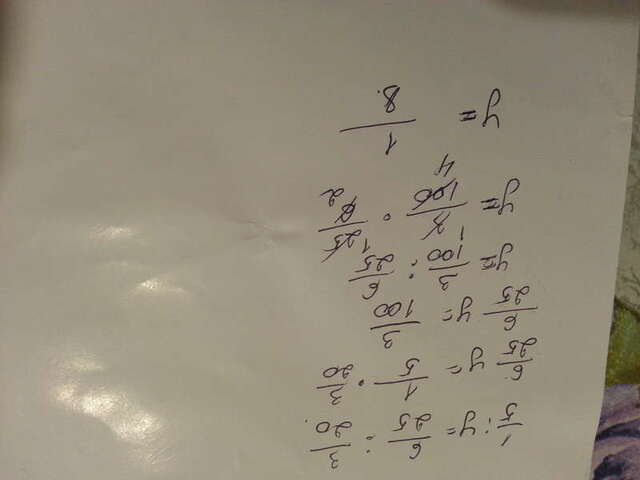 1/5 : y = 6/25 : 3/20
6/25 y = 1/5 · 3/20
6/25 y = 3/100
y = 3/100 : 6/25
y = 3/100 · 25/6 1 4 1 2
y = 1/8.